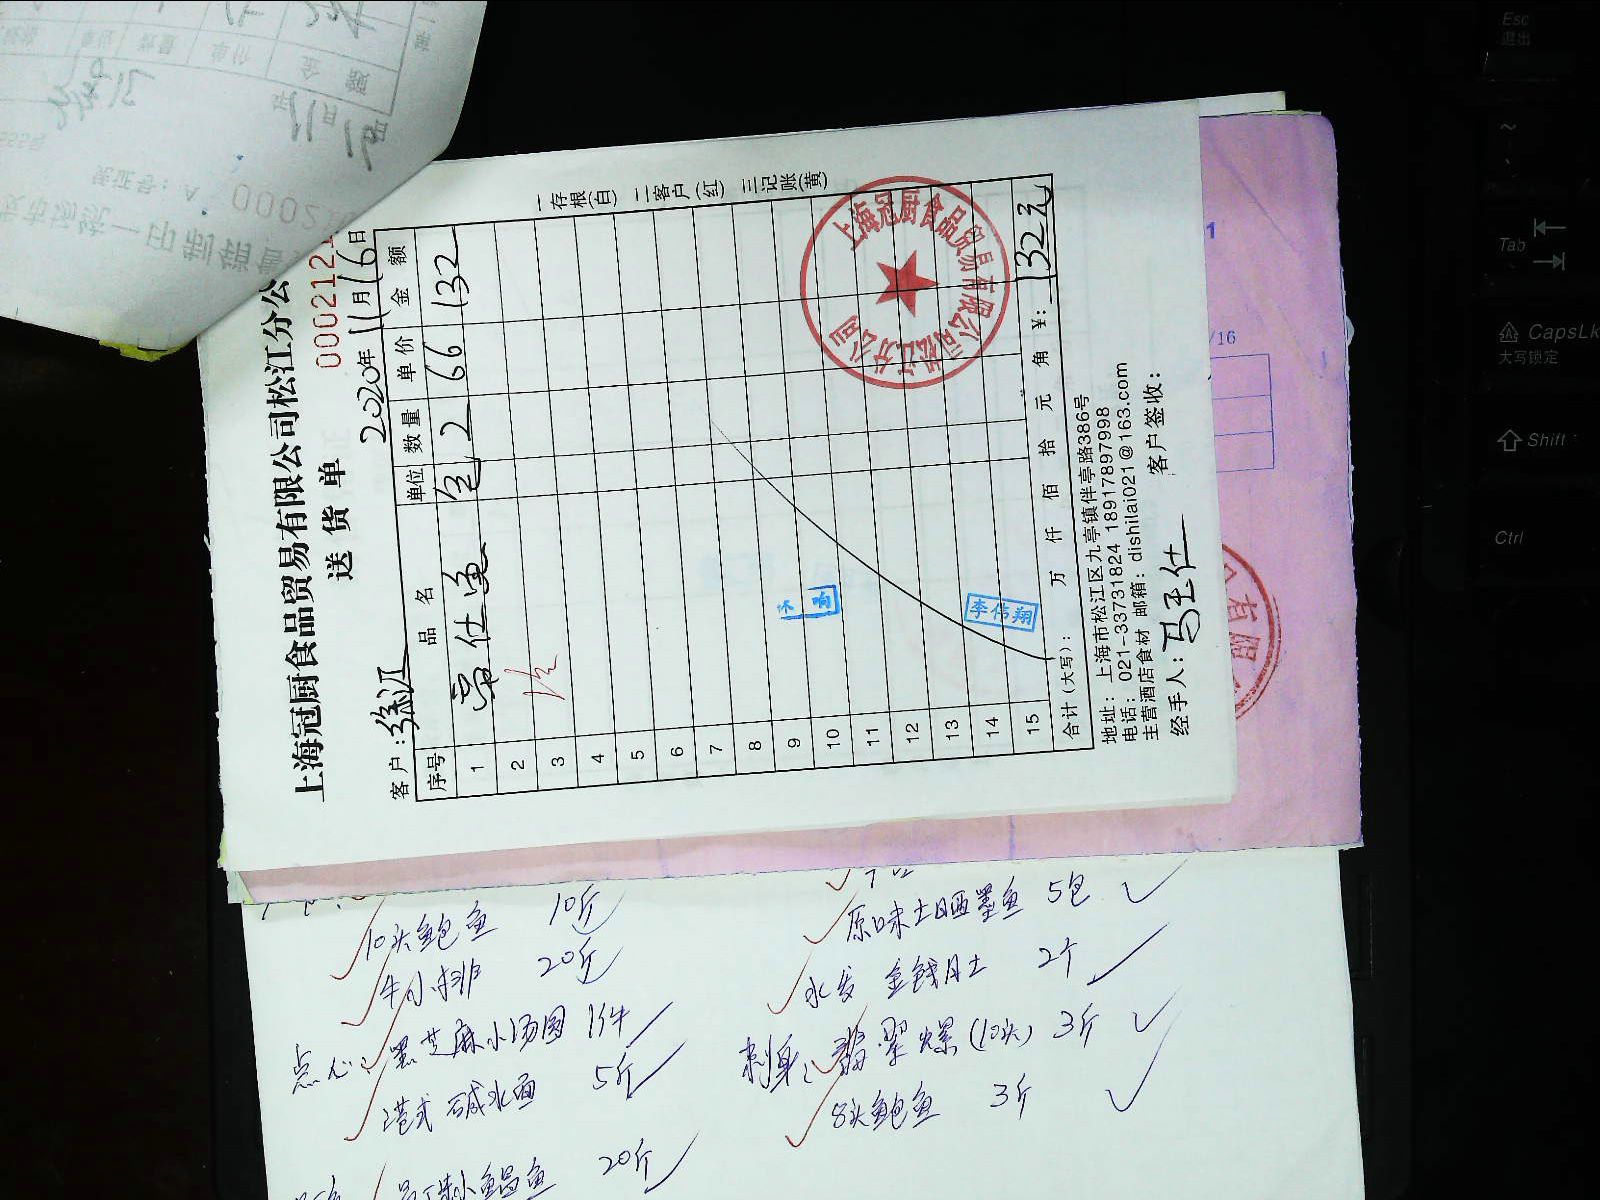 上海冠厨食品贸易有限公司松江分公
送货单
000212
2020年11月16日
客户:徐江
序号 品名 单位 数量 单价 金额
1 常仕鱼 包 2 66 132
2
3
4
5
6
7
8
9
10
11
12
13
14
15
合计(大写): 万 仟 佰 拾 元 角 ¥: 132元
地址: 上海市松江区九亭镇伴亭路386号
电话: 021-33731824 18917897998
主营酒店食材 邮箱: dishilai021@163.com
经手人: 马玉仕 客户签收:
一存根(白) 二客户(红) 三记账(黄)
上海冠厨食品贸易有限公司松江分公司
李伟翔
有限
/16
10头鲍鱼 10斤
牛小排 20斤
点心: 黑芝麻小汤圆 1件
港式碱水面 5斤
20斤
原味土晒墨鱼 5包
水发金钱肚 2个
刺身: 翡翠螺(10头) 3斤
8头鲍鱼 3斤
Esc
退出
Tab
CapsLk
大写锁定
Shift
Ctrl